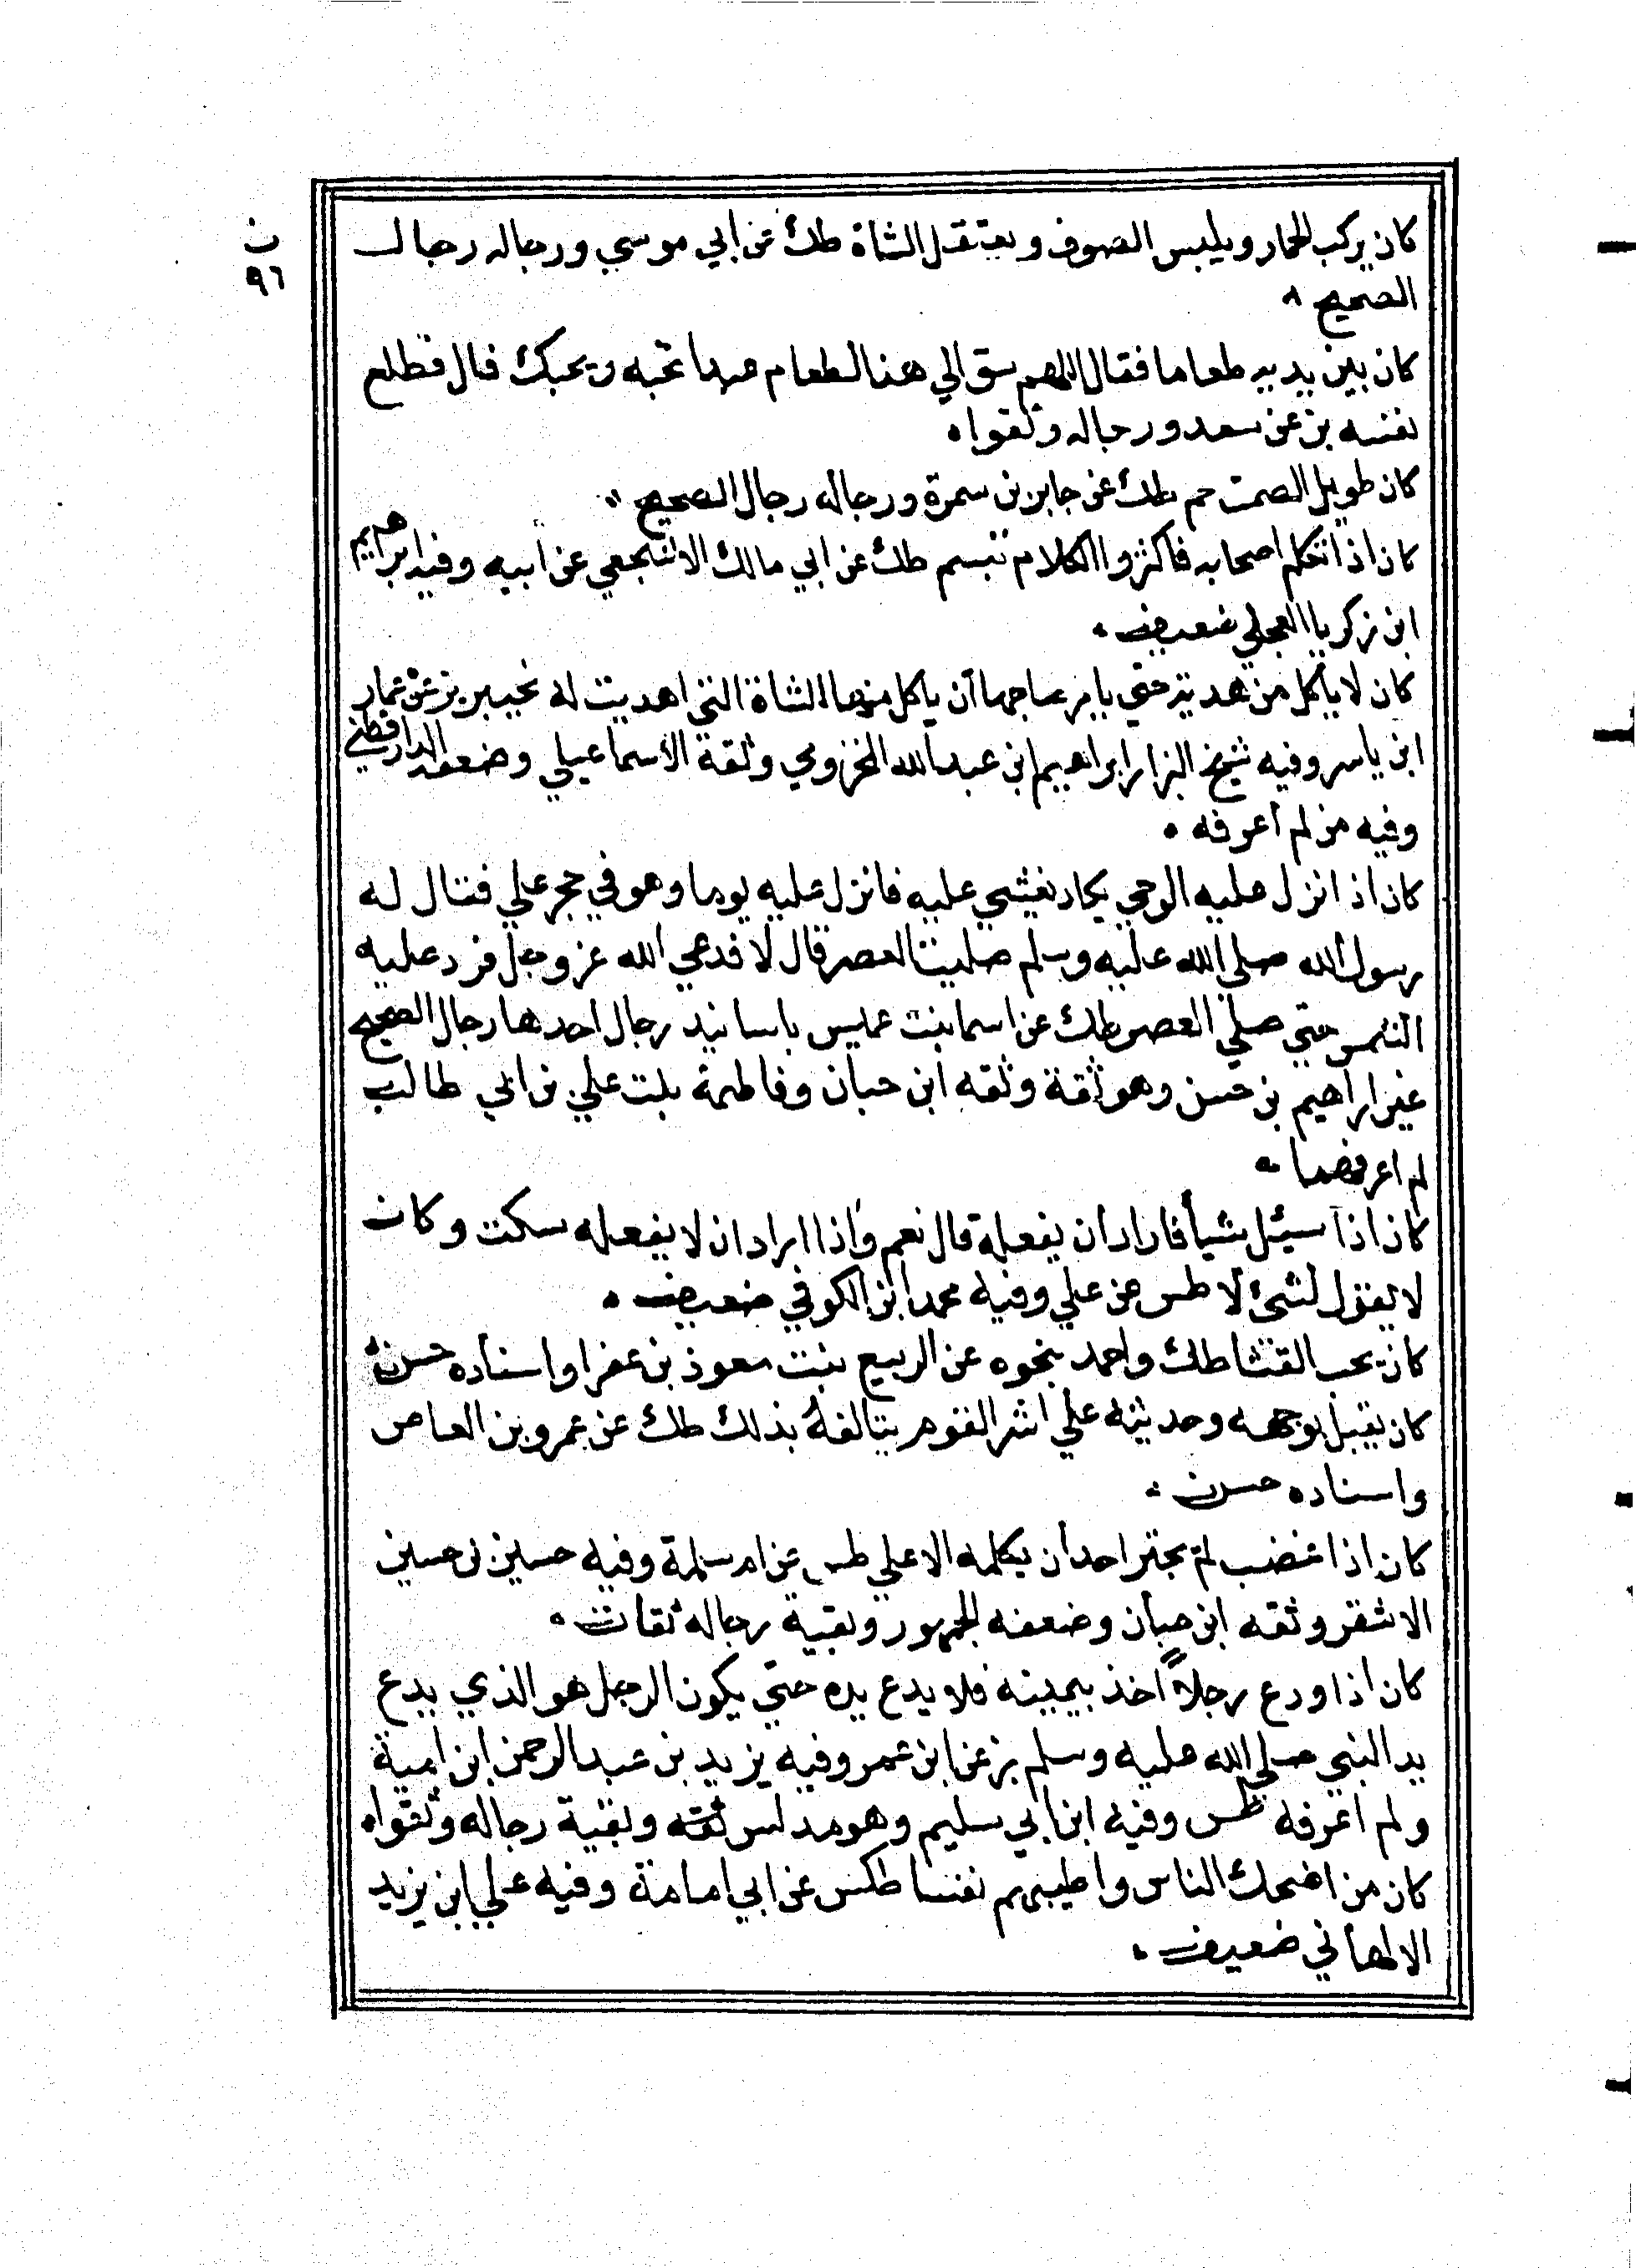 ن
٩٦
كان يركب الحمار ويلبس الصوف ويعتقل الشاة طك عن ابي موسي ورجاله رجال
الصحيح
كان بين يديه طعاما فقال اللهم سق الي هذا الطعام عبدا تحبه ويحبك قال فطلع
نفسه بز عن سعد ورجاله وثقوا
كان طويل الصمت حم طك عن جابر بن سمرة ورجاله رجال الصحيح
كان اذا تكلم اصحابه فاكثروا الكلام تبسم طك عن ابي مالك الاشجعي عن ابيه وفيه ابراهيم
ابن زكريا العجلي ضعيف
كان لا يأكل من هدية حتي يامر صاحبها أن ياكل منها الشاة التي اهديت له بخيبر بز عن عمار
ابن ياسر وفيه شيخ البزار ابراهيم ابن عبد الله المخزومي وثقة الأسماعيلي وضعفه الدارقطني
وفيه من لم أعرفه
كان اذا نزل عليه الوحي يكاد يغشي عليه فانزل عليه يوما وهو في حجر علي فقال له
رسول الله صلى الله عليه وسلم صليت العصر قال لا فدعي الله عز وجل فرد عليه
الشمس حتي صلي العصر طك عن اسما بنت عميس باسانيد رجال احدها رجال الصحيح
غير ابراهيم بن حسن وهو ثقة وثقه ابن حبان وفاطمة بنت علي بن ابي طالب
لم اعرفها
كان اذا سيئل شيأ فاراد أن يفعله قال نعم واذا اراد ان لا يفعله سكت وكان
لا يقول لشئ لا طس عن علي وفيه محمد ابن الكوفي ضعيف
كان يحب القثا طك واحمد بنحوه عن الربيع بنت معوذ بن عفرا واسناده حسن
كان يقبل بوجهه وحديثه علي اشر القوم يتالفه بذلك طك عن عمرو بن العاص
واسناده حسن
كان اذا غضب لم يجتر احد أن يكلمه الا علي طس عن ام سلمة وفيه حسين بن حسين
الاشقر وثقه ابن حبان وضعفه الجمهور وبقية رجاله ثقات
كان اذا ودع رجلاً اخذ بيمينه فلا يدع يده حتي يكون الرجل هو الذي يدع
يد النبي صلي الله عليه وسلم بز عن ابن عمر وفيه يزيد بن عبد الرحمن ابن امية
ولم اعرفه طس وفيه ابن ابي سليم وهو مدلس ثقه وبقية رجاله وثقوا
كان من اضحك الناس واطيبهم نفسا طكس عن ابي امامة وفيه علي ابن يزيد
الالهأني ضعيف